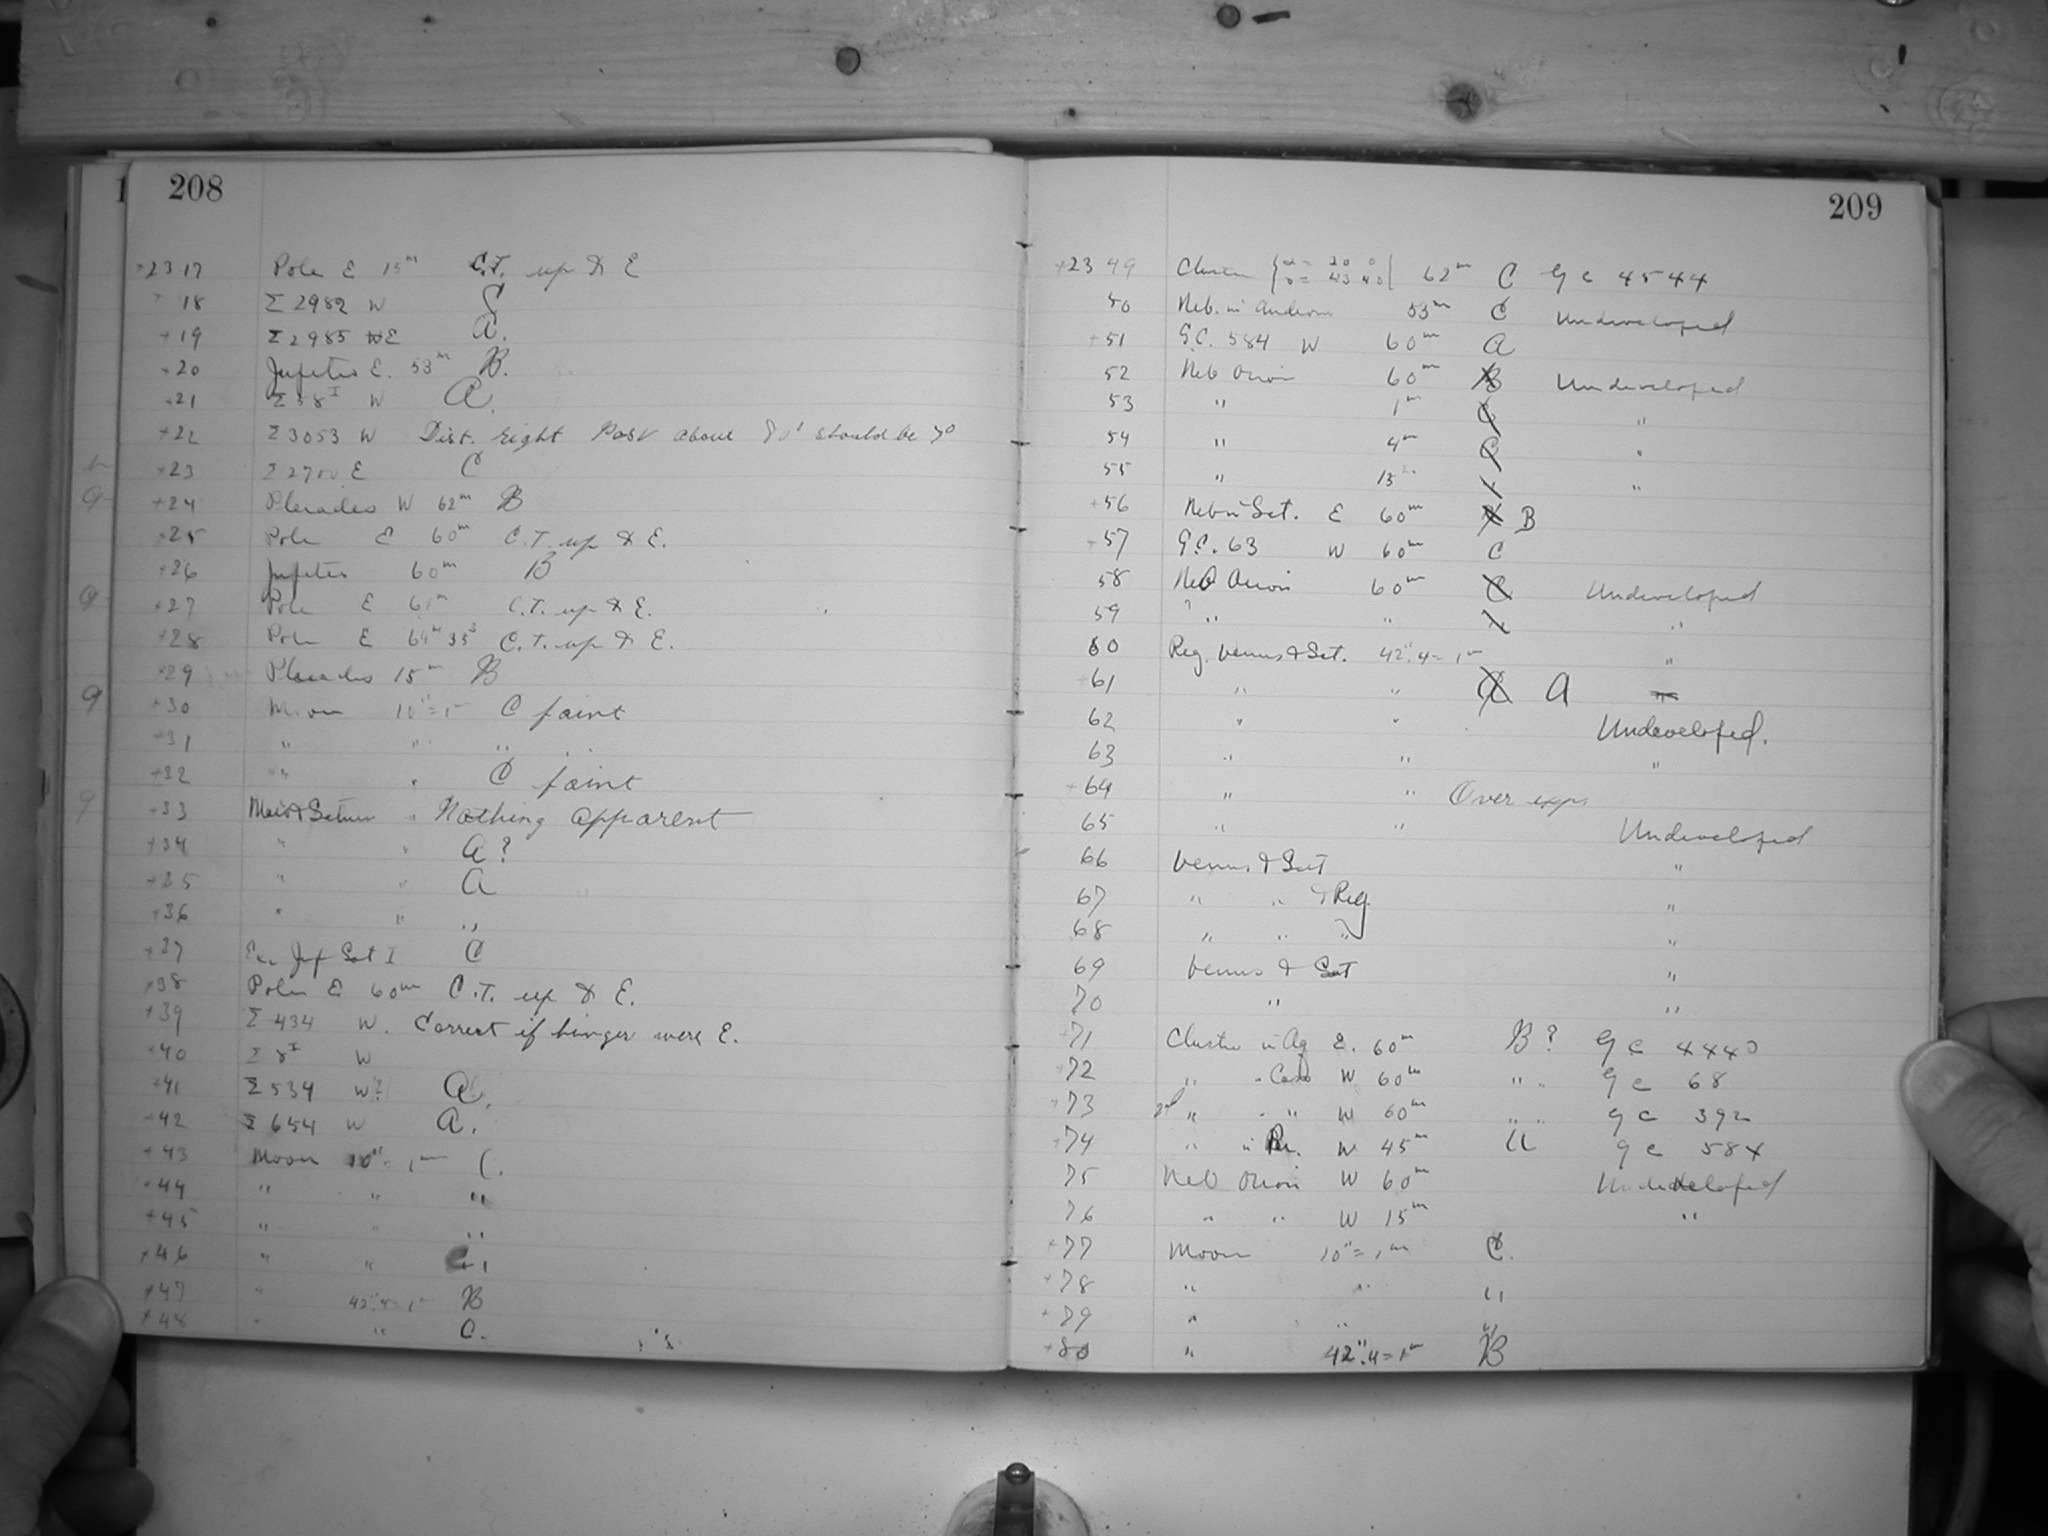 208
+2317 Pole E 15m C.T. up & E
+18 Σ 2982 W C
+19 Σ 2985 E A.
+20 Jupiter E. 58m B.
+21 Σ 38I W A.
+22 Σ 3053 W Dist. right Post about 80' should be 70
+23 Σ 2700 E C
+24 Pleiades W 62m B
+25 Pole E 60m C.T. up & E.
+26 Jupiter 60m B
+27 Pole E 61m C.T. up & E.
+28 Pole E 64m 35s C.T. up & E.
+29 Pleiades 15m B
+30 Moon 10"=1m C faint
+31 " " " "
+32 " " C faint
+33 Moon & Saturn " Nothing apparent
+34 " " A?
+35 " " A
+36 " " "
+37 Ec. Jup Sat I C
+38 Pole E 60m C.T. up & E.
+39 Σ 434 W. Correct if hinger were E.
+40 Σ 8I W
+41 Σ 534 W? A.
+42 Σ 654 W A.
+43 Moon 10"=1m C.
+44 " " "
+45 " " "
+46 " " "
+47 " 42".4=1m B
+48 " " C.
209
+2349 Cluster { α = 20 0 δ = 43 40 } 62m C G C 4544
50 Neb. in Androm 53m C Undeveloped
+51 G.C. 584 W 60m A
52 Neb Orion 60m B Undeveloped
53 " 1m C "
54 " 4m C "
55 " 15m "
+56 Neb in Set. E 60m B
+57 G.C. 63 W 60m C
58 Neb Orion 60m C Undeveloped
59 " " "
60 Reg. Venus & Sat. 42".4=1m "
+61 " " A
62 " " Undeveloped.
63 " " "
+64 " " Over exp.
65 " " Undeveloped
66 Venus & Sat "
67 " " & Reg. "
68 " " " "
69 Venus & Sat "
70 " "
+71 Cluster in Aq E. 60m B? G C 4440
+72 " " Cass W 60m " " G C 68
+73 2d " " " W 60m " " G C 392
+74 " in Per. W 45m A G C 584
75 Neb Orion W 60m Undeveloped
76 " " W 15m "
+77 Moon 10"=1m C.
+78 " " "
+79 " " "
+80 " 42".4=1m B